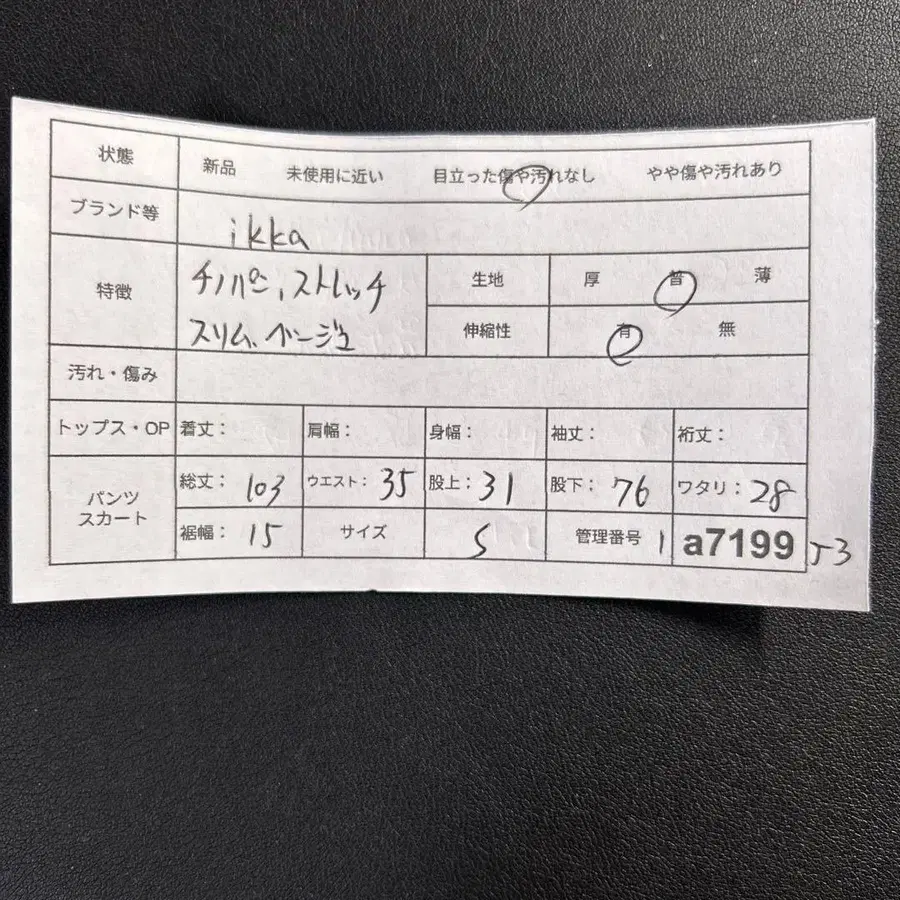 状態 新品 未使用に近い 目立った傷や汚れなし やや傷や汚れあり
ブランド等 ikka
特徴 チノパン、ストレッチ 生地 厚 普 薄
スリム、ベージュ 伸縮性 有 無
汚れ・傷み
トップス・OP 着丈： 肩幅： 身幅： 袖丈： 裄丈：
パンツ スカート 総丈： 103 ウエスト： 35 股上： 31 股下： 76 ワタリ： 28
裾幅： 15 サイズ S 管理番号 1 a7199